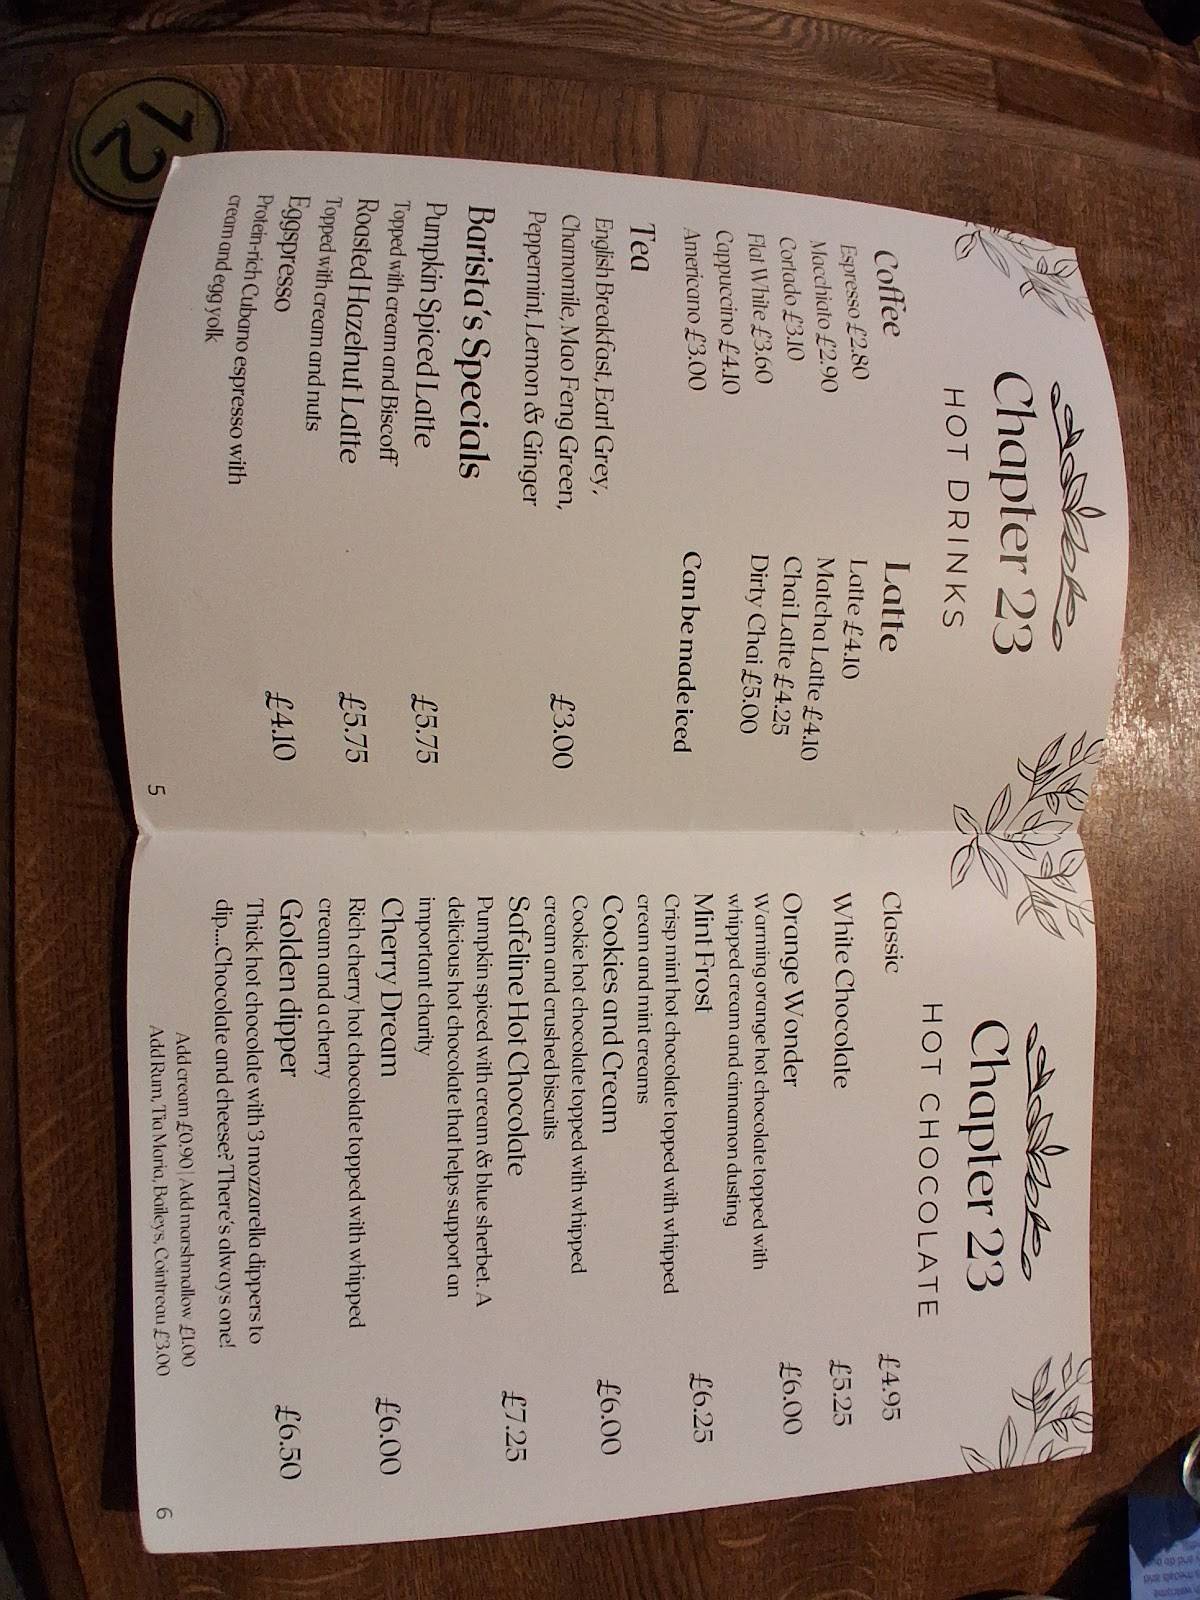 12
Chapter 23
HOT DRINKS
Coffee
Espresso £2.80
Macchiato £2.90
Cortado £3.10
Flat White £3.60
Cappuccino £4.10
Americano £3.00
Latte
Latte £4.10
Matcha Latte £4.10
Chai Latte £4.25
Dirty Chai £5.00
Can be made iced
Tea
English Breakfast, Earl Grey,
Chamomile, Mao Feng Green,
Peppermint, Lemon & Ginger £3.00
Barista's Specials
Pumpkin Spiced Latte £5.75
Topped with cream and Biscoff
Roasted Hazelnut Latte £5.75
Topped with cream and nuts
Eggspresso £4.10
Protein-rich Cubano espresso with
cream and egg yolk
5
Chapter 23
HOT CHOCOLATE
Classic £4.95
White Chocolate £5.25
Orange Wonder £6.00
Warming orange hot chocolate topped with
whipped cream and cinnamon dusting
Mint Frost £6.25
Crisp mint hot chocolate topped with whipped
cream and mint creams
Cookies and Cream £6.00
Cookie hot chocolate topped with whipped
cream and crushed biscuits
Safeline Hot Chocolate £7.25
Pumpkin spiced with cream & blue sherbet. A
delicious hot chocolate that helps support an
important charity
Cherry Dream £6.00
Rich cherry hot chocolate topped with whipped
cream and a cherry
Golden dipper £6.50
Thick hot chocolate with 3 mozzarella dippers to
dip....Chocolate and cheese? There's always one!
Add cream £0.90 | Add marshmallow £1.00
Add Rum, Tia Maria, Baileys, Cointreau £3.00
6